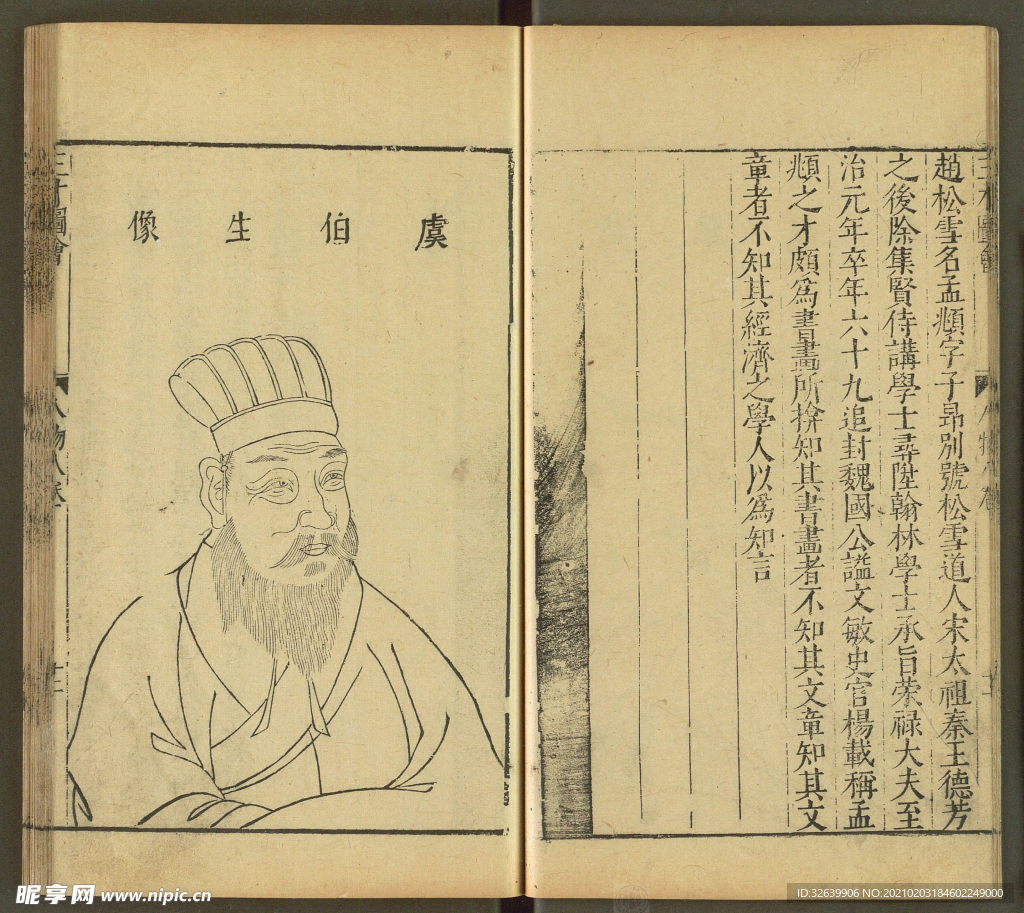 三才圖會
趙松雪名孟頫字子昂別號松雪道人宋太祖秦王德芳
之後除集賢侍講學士尋陞翰林學士承旨荣禄大夫至
治元年卒年六十九追封魏國公謚文敏史官楊載稱孟
頫之才頗爲書畫所揜知其書畫者不知其文章知其文
章者不知其經濟之學人以爲知言
虞伯生像
三才圖會
人物八卷
昵享网 www.nipic.cn
ID:32639906 NO:20210203184602249000